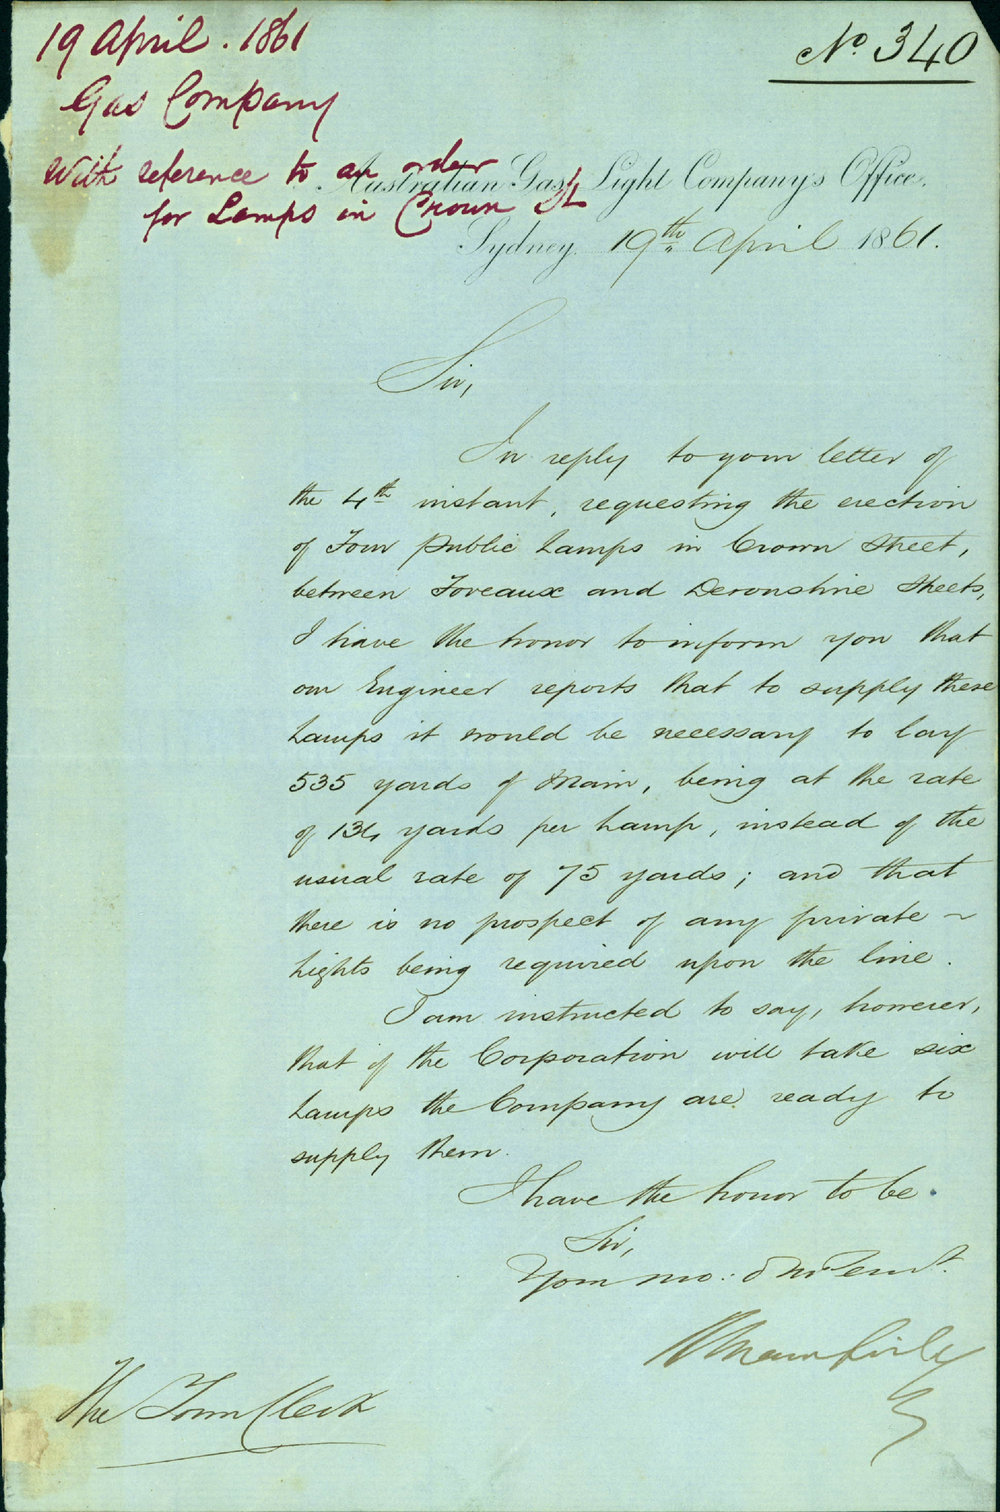 19 April. 1861
Gas Company
With reference to an order
for Lamps in Crown St
No. 340
Australian Gas Light Company's Office,
Sydney. 19th April 1861.
Sir,
In reply to your letter of
the 4th instant, requesting the erection
of Four Public Lamps in Crown Street,
between Foveaux and Devonshire Streets,
I have the honor to inform you that
our Engineer reports that to supply these
Lamps it would be necessary to lay
535 yards of Main, being at the rate
of 134 yards per Lamp, instead of the
usual rate of 75 yards; and that
there is no prospect of any private ~
Lights being required upon the line.
I am instructed to say, however,
that if the Corporation will take six
Lamps the Company are ready to
supply them.
I have the honor to be.
Sir,
Your mo: 
The Town Clerk